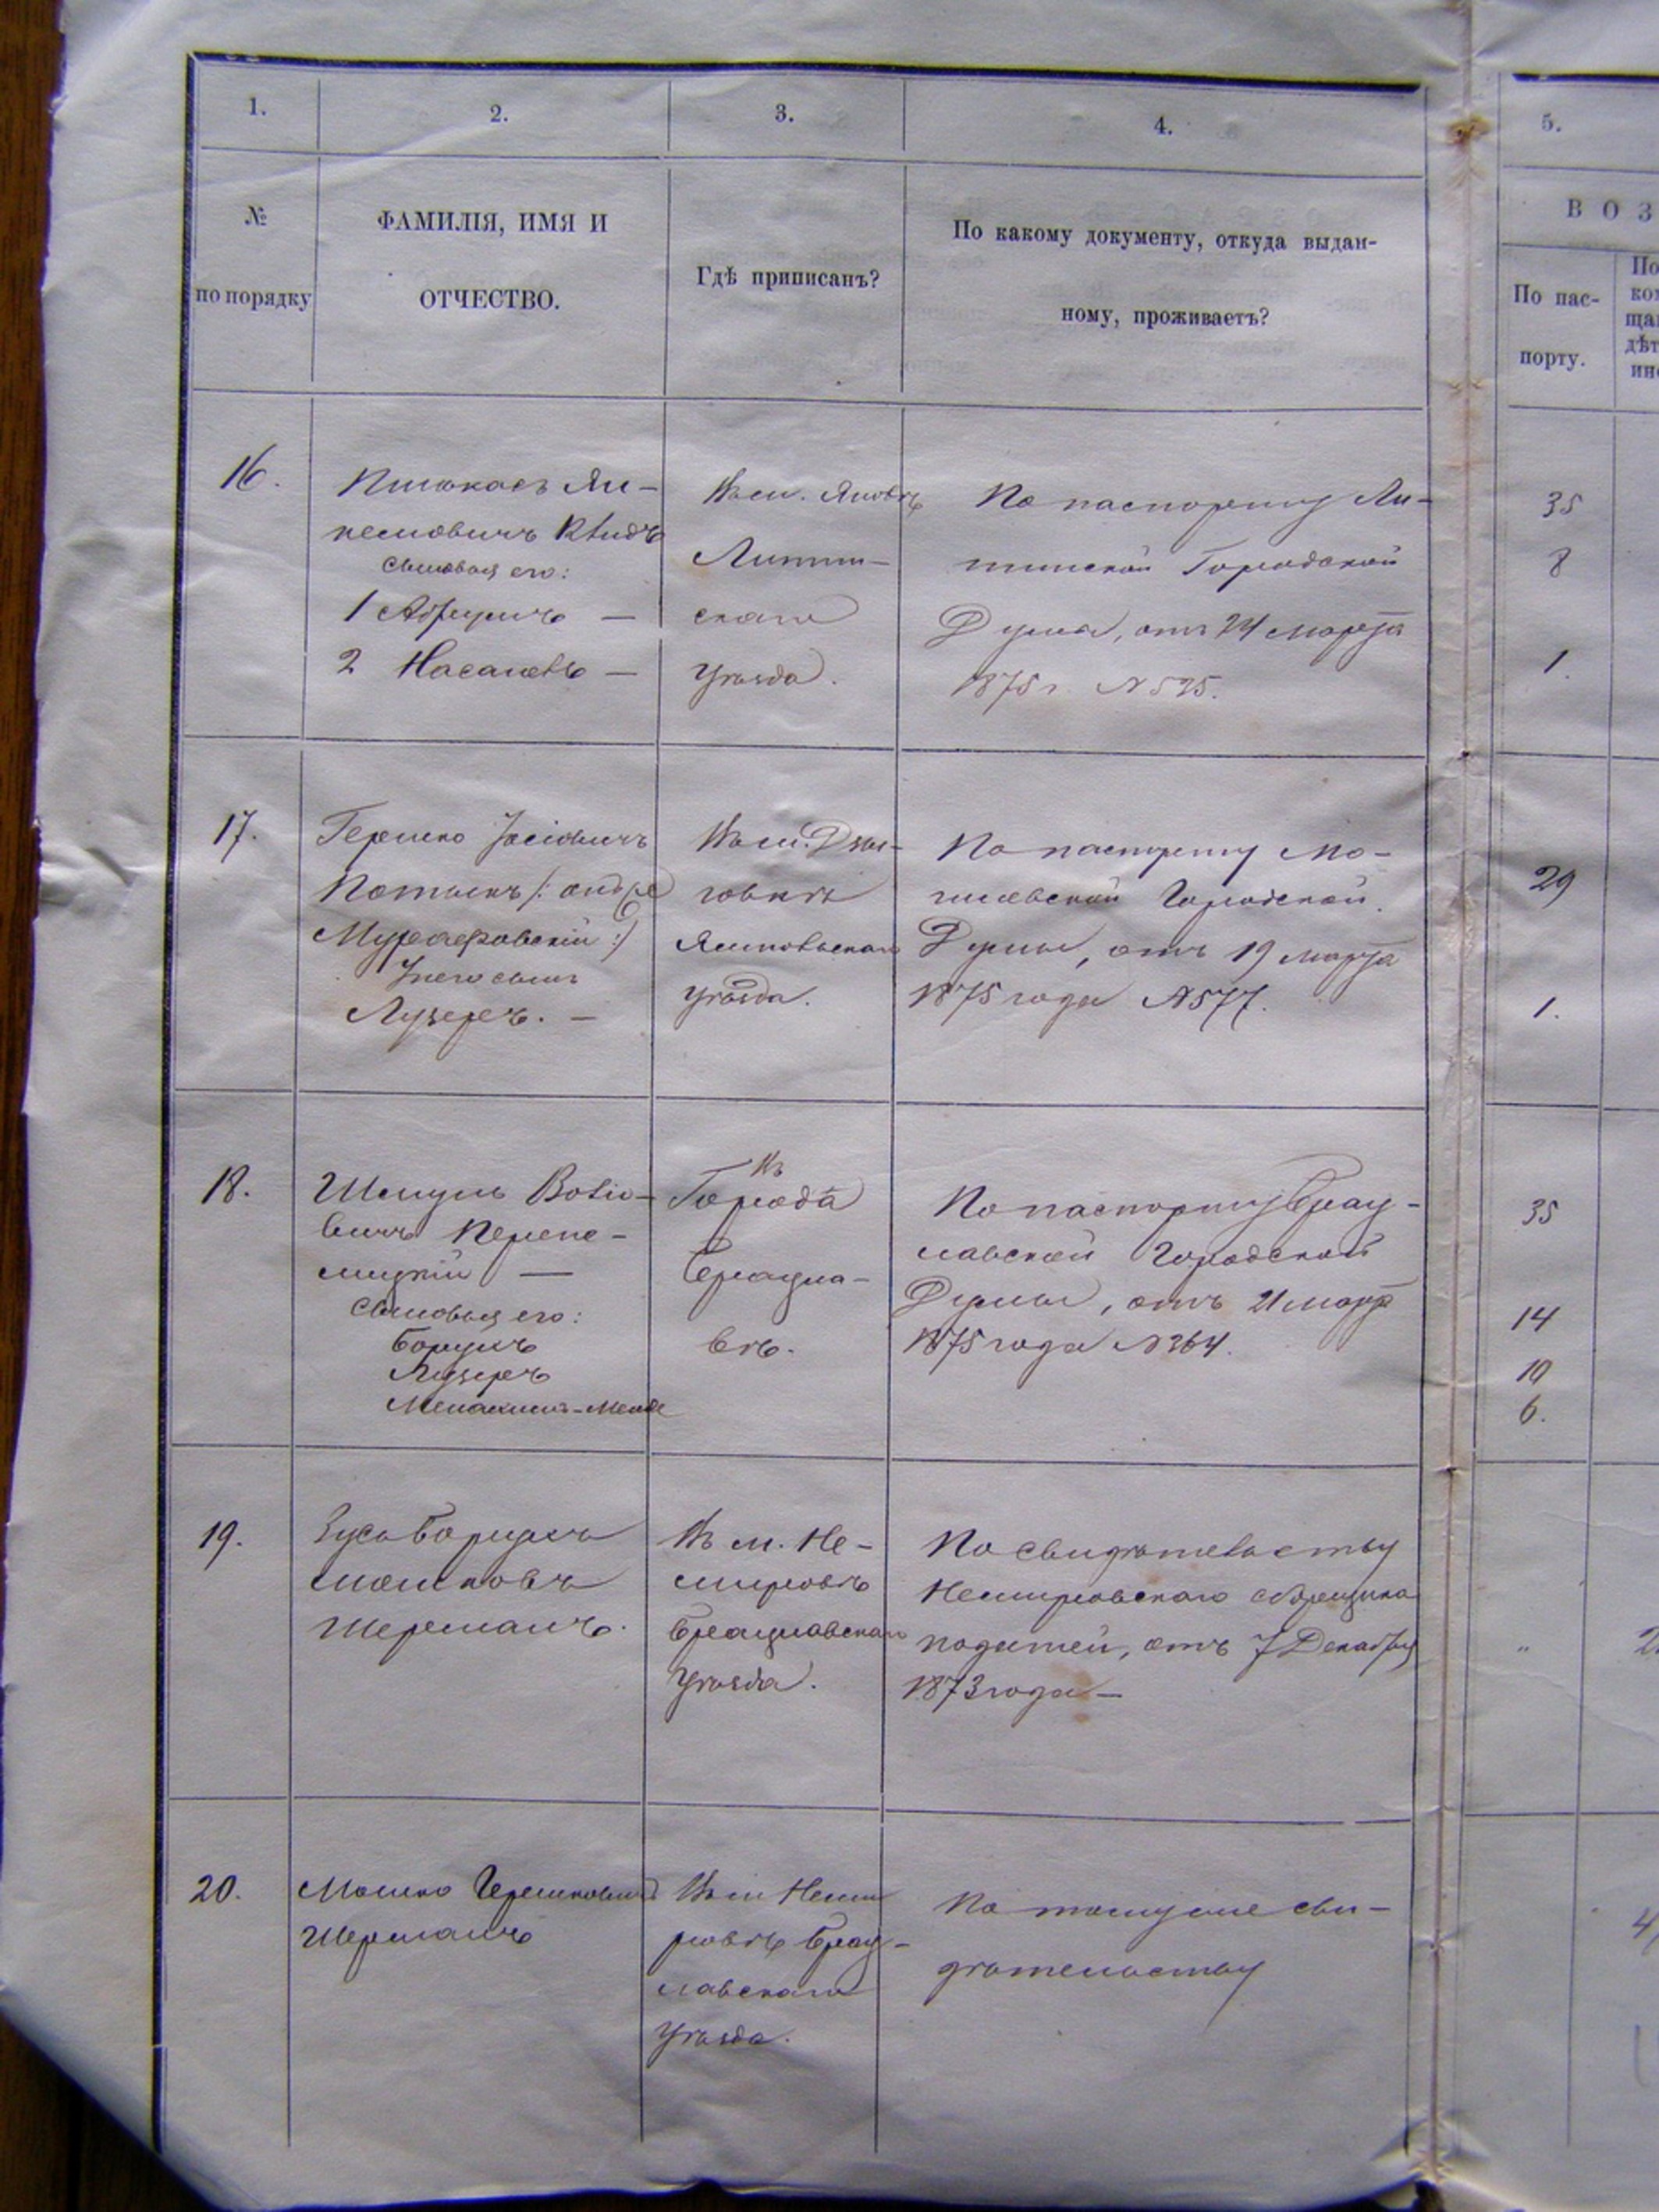 1.
2.
3.
4.
5.
№
по порядку
ФАМИЛІЯ, ИМЯ И
ОТЧЕСТВО.
Гдѣ приписанъ?
По какому документу, откуда выдан-
ному, проживаетъ?
В О З
По пас-
порту.
По
ко
ща
дѣт
ин
16.
Пинкасъ
сыновья его:
1 Абрумъ —
2 —
Въ м. Яновѣ
Литин-
скаго
уѣзда.
По паспорту Ли-
тинской Городской
Думы, отъ 24 марта
1875 г. № 525.
35
8
1.
17.
Гершко Іосіовичъ
Мурафовскій :)
У него сынъ
Лузеръ. —
Въ м. Дзы-
говкѣ
Ямпольскаго
уѣзда.
По паспорту Мо-
гилевской Городской
Думы, отъ 19 марта
1875 года № 577.
29
1.
18.
Шмуль
вичъ Перепе-
лицкій —
Сыновья его:
Борухъ
Лузеръ
Менахимъ-Мендл
Въ
Города
Брацла-
вѣ.
По паспорту Брац-
лавской Городской
Думы, отъ 21 марта
1875 года № 364.
35
14
10
6.
19.
Зусь Борухъ
Мошковъ
Шерманъ.
Въ м. Не-
мировѣ
Брацлавскаго
уѣзда.
По свидѣтельству
Немировскаго сборщика
податей, отъ 7 Декабря
1873 года —
"
2
20.
Мошко Гершковичъ
Шерманъ
Въ м Неми
ровѣ Брац-
лавскаго
уѣзда.
По такому же сви-
дѣтельству
4